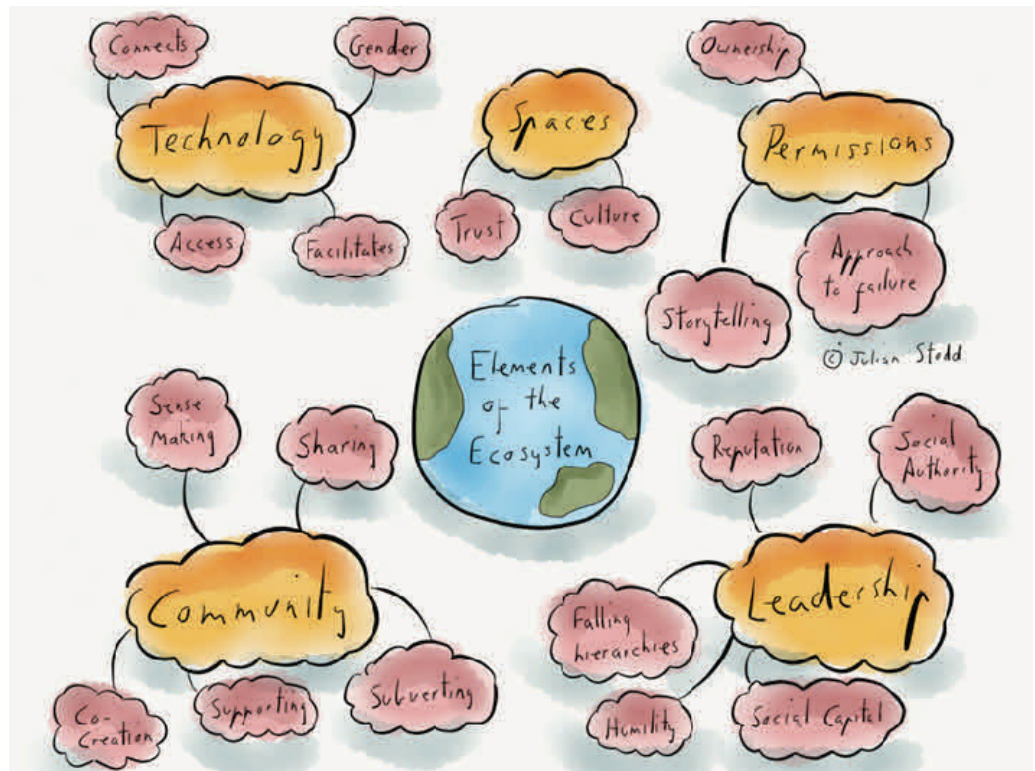 Connects
Gender
Technology
Access
Facilitates
Spaces
Trust
Culture
Ownership
Permissions
Storytelling
Approach
to failure
© Julian Stodd
Elements
of the
Ecosystem
Sense
Making
Sharing
Community
Co-
Creation
Supporting
Subverting
Reputation
Social
Authority
Leadership
Falling
hierarchies
Humility
Social Capital